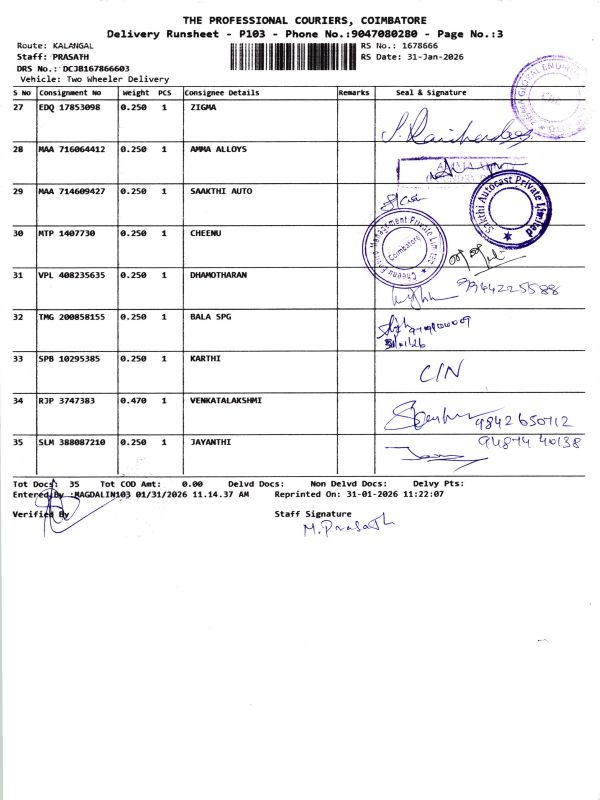 THE PROFESSIONAL COURIERS, COIMBATORE
Delivery Runsheet - P103 - Phone No.:9047080280 - Page No.:3
Route: KALANGAL
RS No.: 1678666
Staff: PRASATH
RS Date: 31-Jan-2026
DRS No.: DCJB167866603
Vehicle: Two Wheeler Delivery
S No Consignment No Weight PCS Consignee Details Remarks Seal & Signature
27 EDQ 17853098 0.250 1 ZIGMA
28 MAA 716064412 0.250 1 AMMA ALLOYS
29 MAA 714609427 0.250 1 SAAKTHI AUTO
Sakthi Autocast Private Limited
30 MTP 1407730 0.250 1 CHEENU
Coimbatore
31 VPL 408235635 0.250 1 DHAMOTHARAN
9944225588
32 TMG 200858155 0.250 1 BALA SPG
33 SPB 10295385 0.250 1 KARTHI
C/N
34 RJP 3747383 0.470 1 VENKATALAKSHMI
9842650712
35 SLM 388087210 0.250 1 JAYANTHI
94874 40138
Tot Docs: 35 Tot COD Amt: 0.00 Delvd Docs: Non Delvd Docs: Delvy Pts:
Entered By :MAGDALIN103 01/31/2026 11.14.37 AM Reprinted On: 31-01-2026 11:22:07
Verified By
Staff Signature
M. Prasath